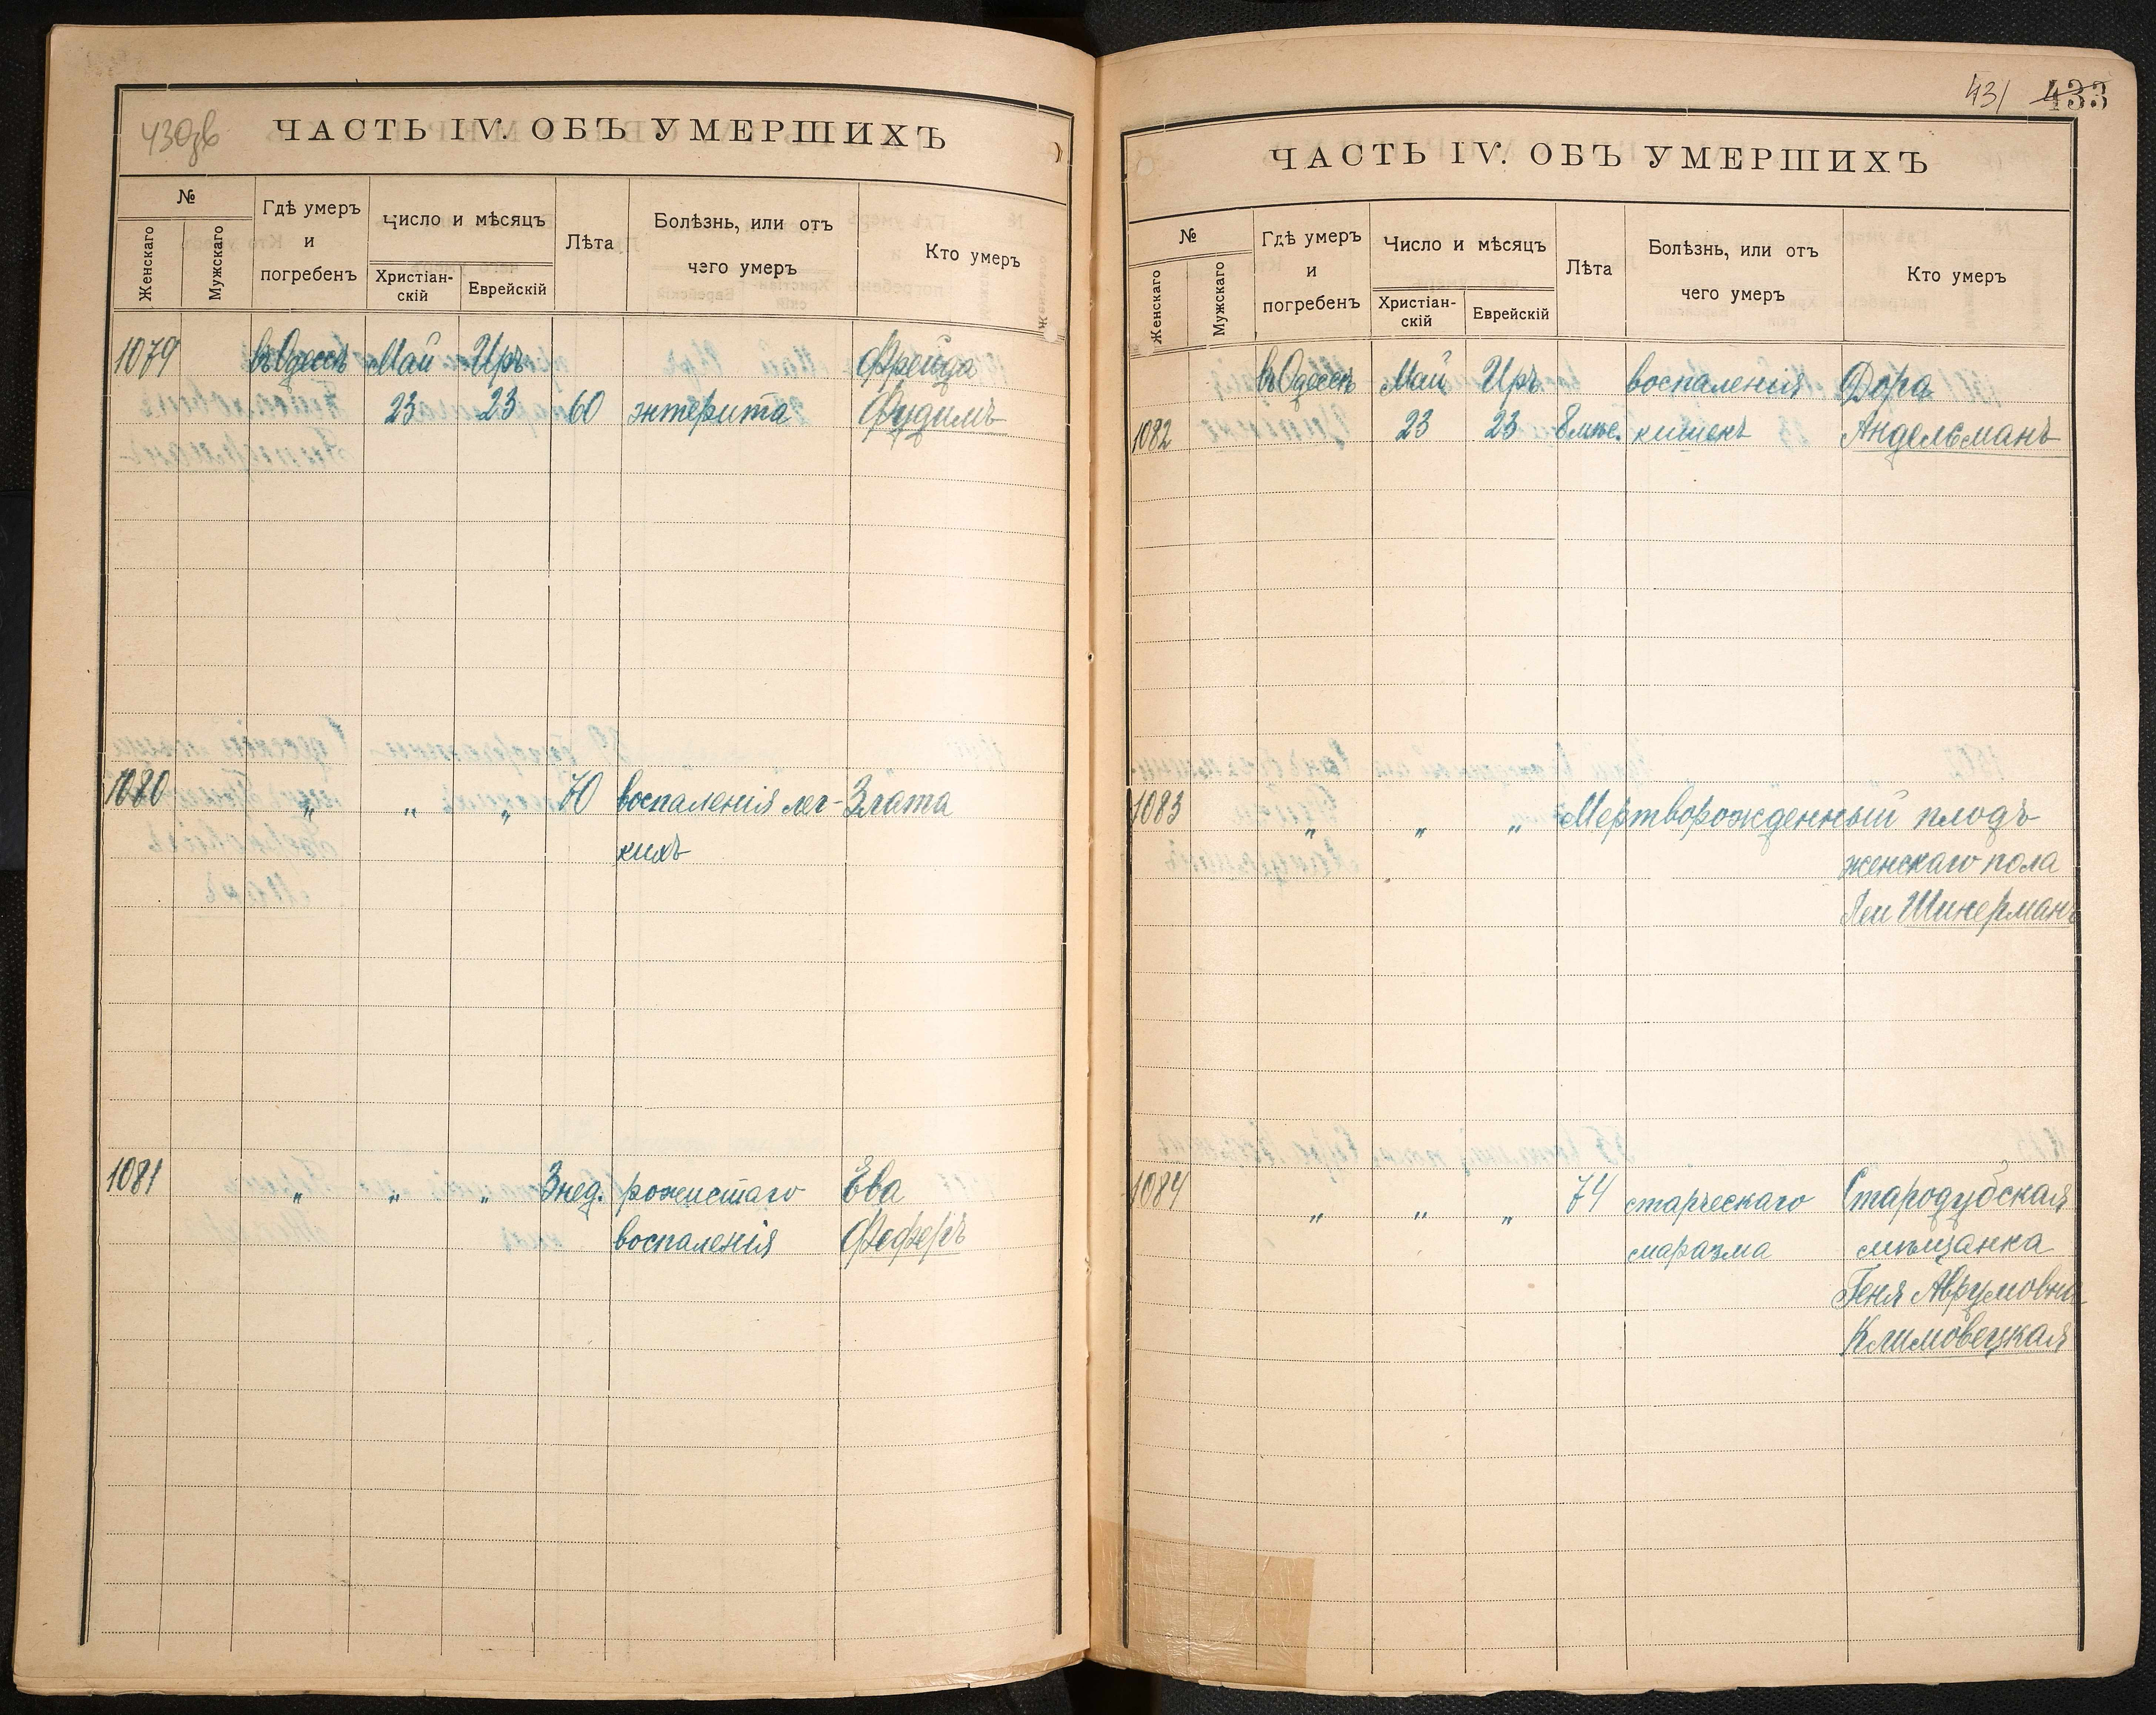 430зв
ЧАСТЬ IV. ОБЪ УМЕРШИХЪ
№
Женскаго
Мужскаго
Гдѣ умеръ
и
погребенъ
Число и мѣсяцъ
Христіан-
скій
Еврейскій
Лѣта
Болѣзнь, или отъ
чего умеръ
Кто умеръ
1079 въ Одессѣ Май Иръ Фрейда
23 23 60 энтерита Фудимъ
1080 „ „ „ 70 воспаленія лег- Злата
кихъ
1081 „ „ „ 3 нед. рожистаго Ева
воспаленія Феферъ
431 433
ЧАСТЬ IV. ОБЪ УМЕРШИХЪ
№
Женскаго
Мужскаго
Гдѣ умеръ
и
погребенъ
Число и мѣсяцъ
Христіан-
скій
Еврейскій
Лѣта
Болѣзнь, или отъ
чего умеръ
Кто умеръ
въ Одессѣ Май Иръ воспаленія Дора
1082 23 23 8 мѣс. кишекъ Андельманъ
1083 „ „ „ Мертворожденный плодъ
женскаго пола
Леи Шинерманъ
1084 „ „ „ 74 старческаго Стародубская
маразма мѣщанка
Геня Аврумовна
Климовецкая